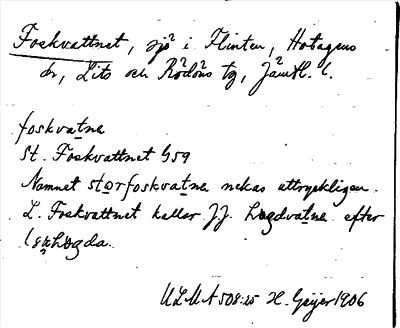 Foskvattnet, sjö i Flinten, Hotagens
sn, Lits och Rödöns tg, Jämtl. l.
foskvatne
St. Foskvattnet G59
Namnet storfoskvatne nekas uttryckligen.
L. Foskvattnet kallar J.J. hogdvatne efter
hogda.
ULMA 508:25 H. Geijer 1906